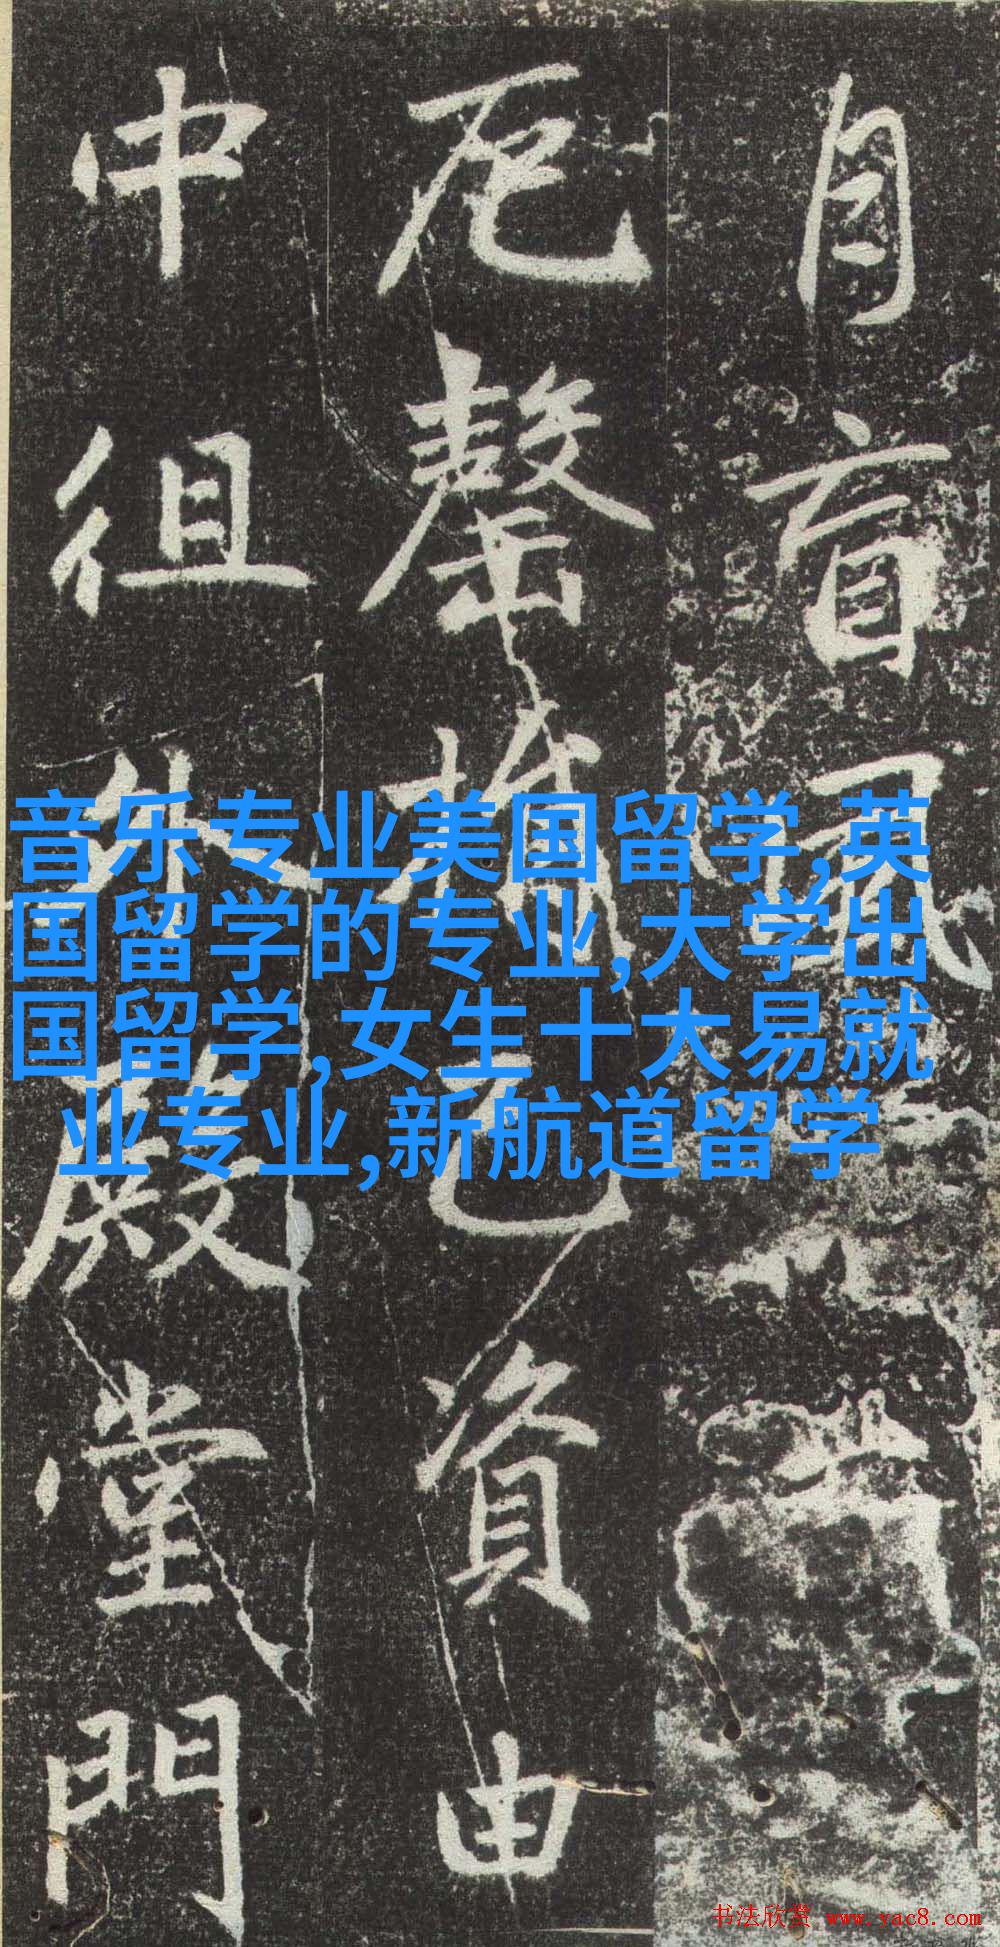 自盲風
厄罄已資由
中徂外殿堂門
音乐专业美国留学,英
国留学的专业,大学出
国留学,女生十大易就
业专业,新航道留学
书法欣赏 www.yac8.com